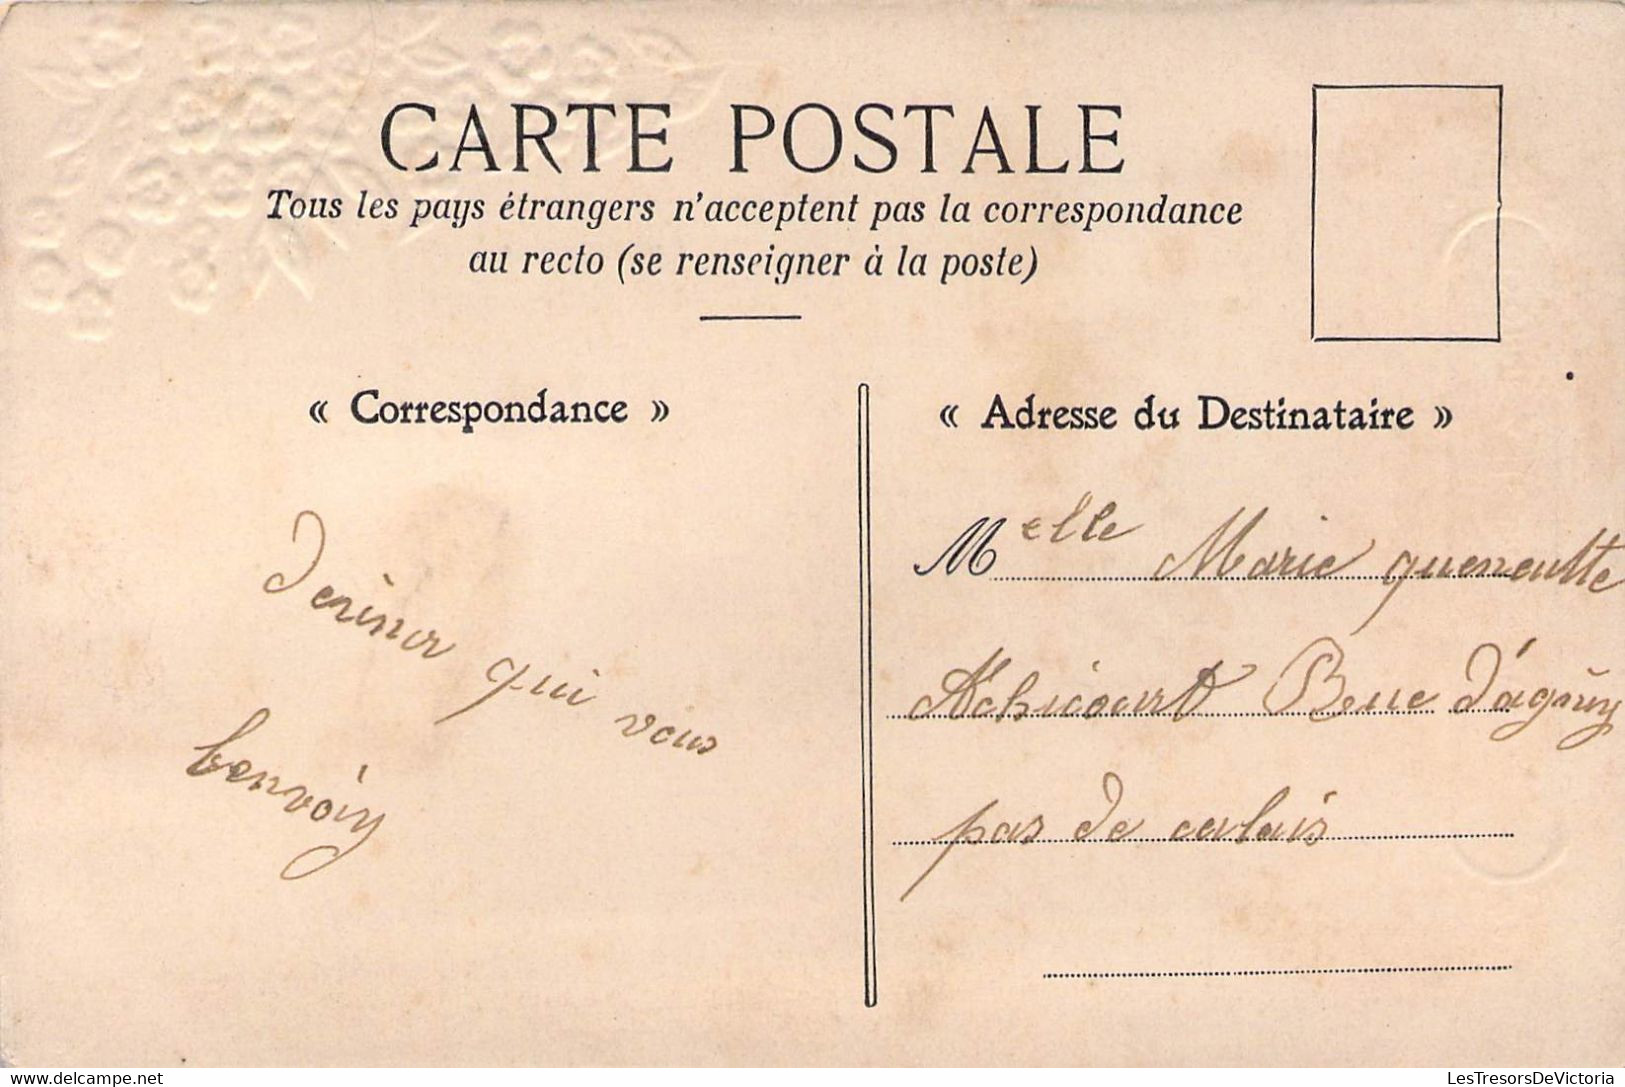 CARTE POSTALE
Tous les pays étrangers n'acceptent pas la correspondance
au recto (se renseigner à la poste)
« Correspondance »
deviner qui vous
l'envoiy
« Adresse du Destinataire »
Melle Marie queneutte
Achicourt Rue d'agny
pas de calais
LesTresorsDeVictoria